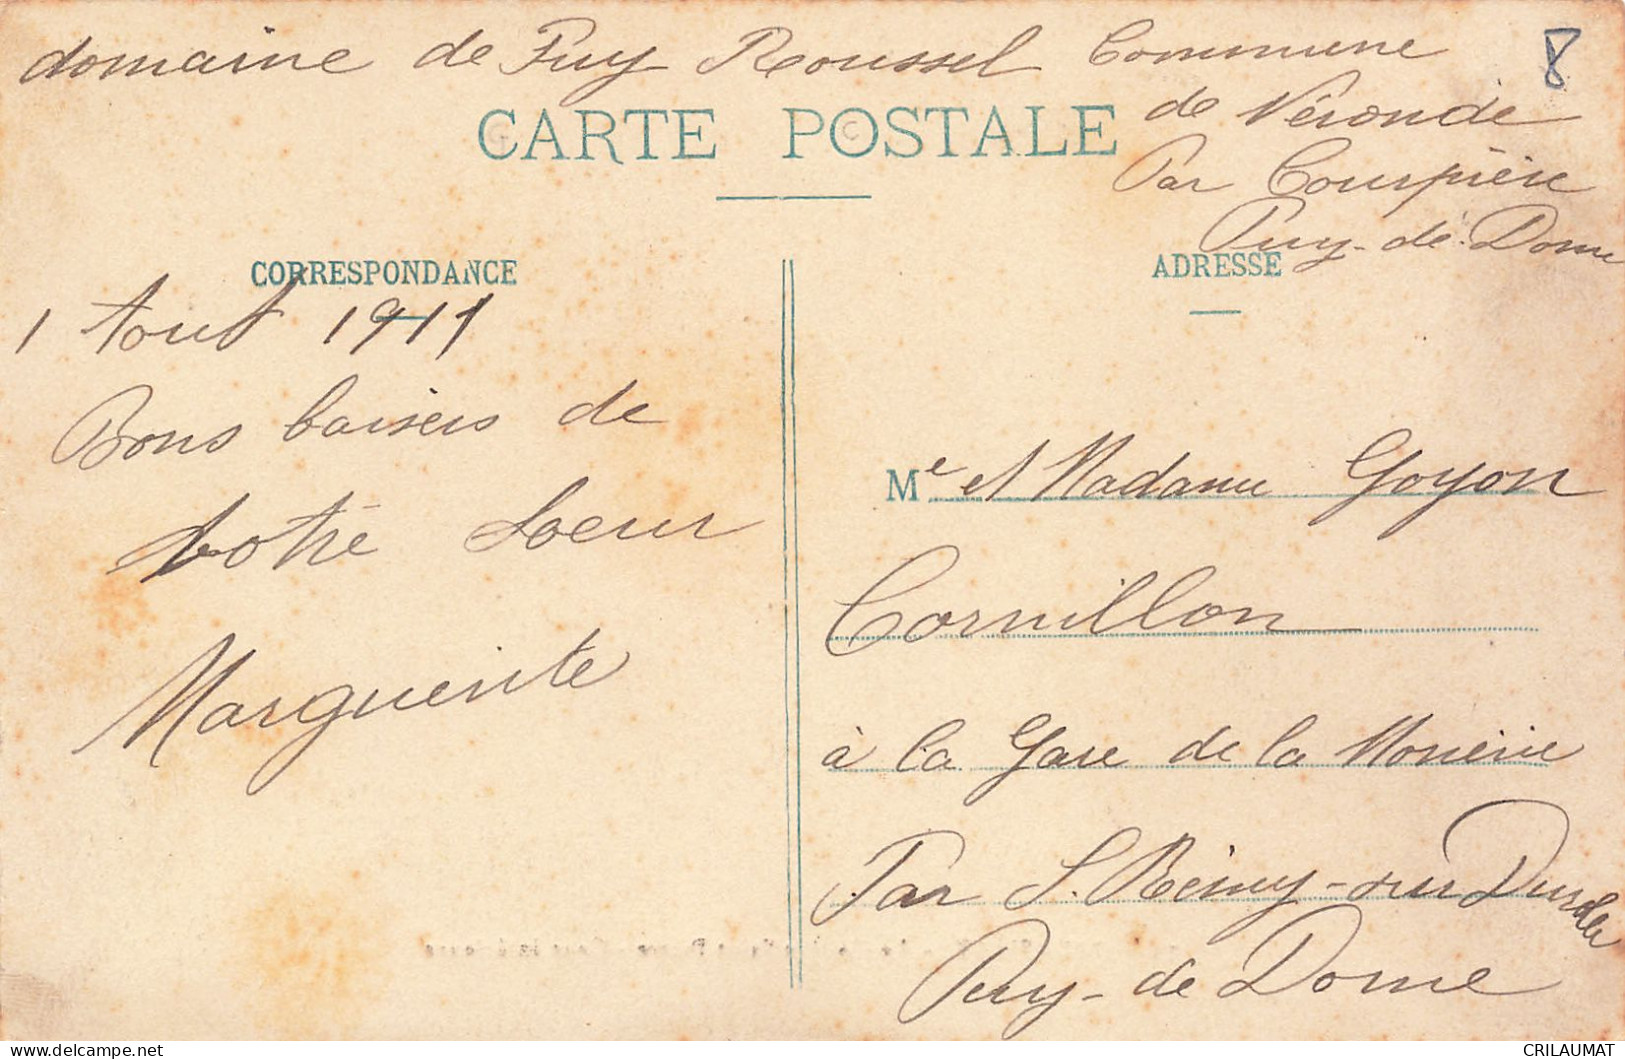 domaine de Puy Roussel Commune
de Néronde
Par Courpière
Puy-de-Dome
8
CARTE POSTALE
CORRESPONDANCE
1 Aout 1911
Bons baisers de
votre Soeur
Marguerite
ADRESSE
Me et Madame Goyon
Cornillon
à la Gare de la Monerie
Par S. Rémy-sur Durolle
Puy-de Dome
CRILAUMAT